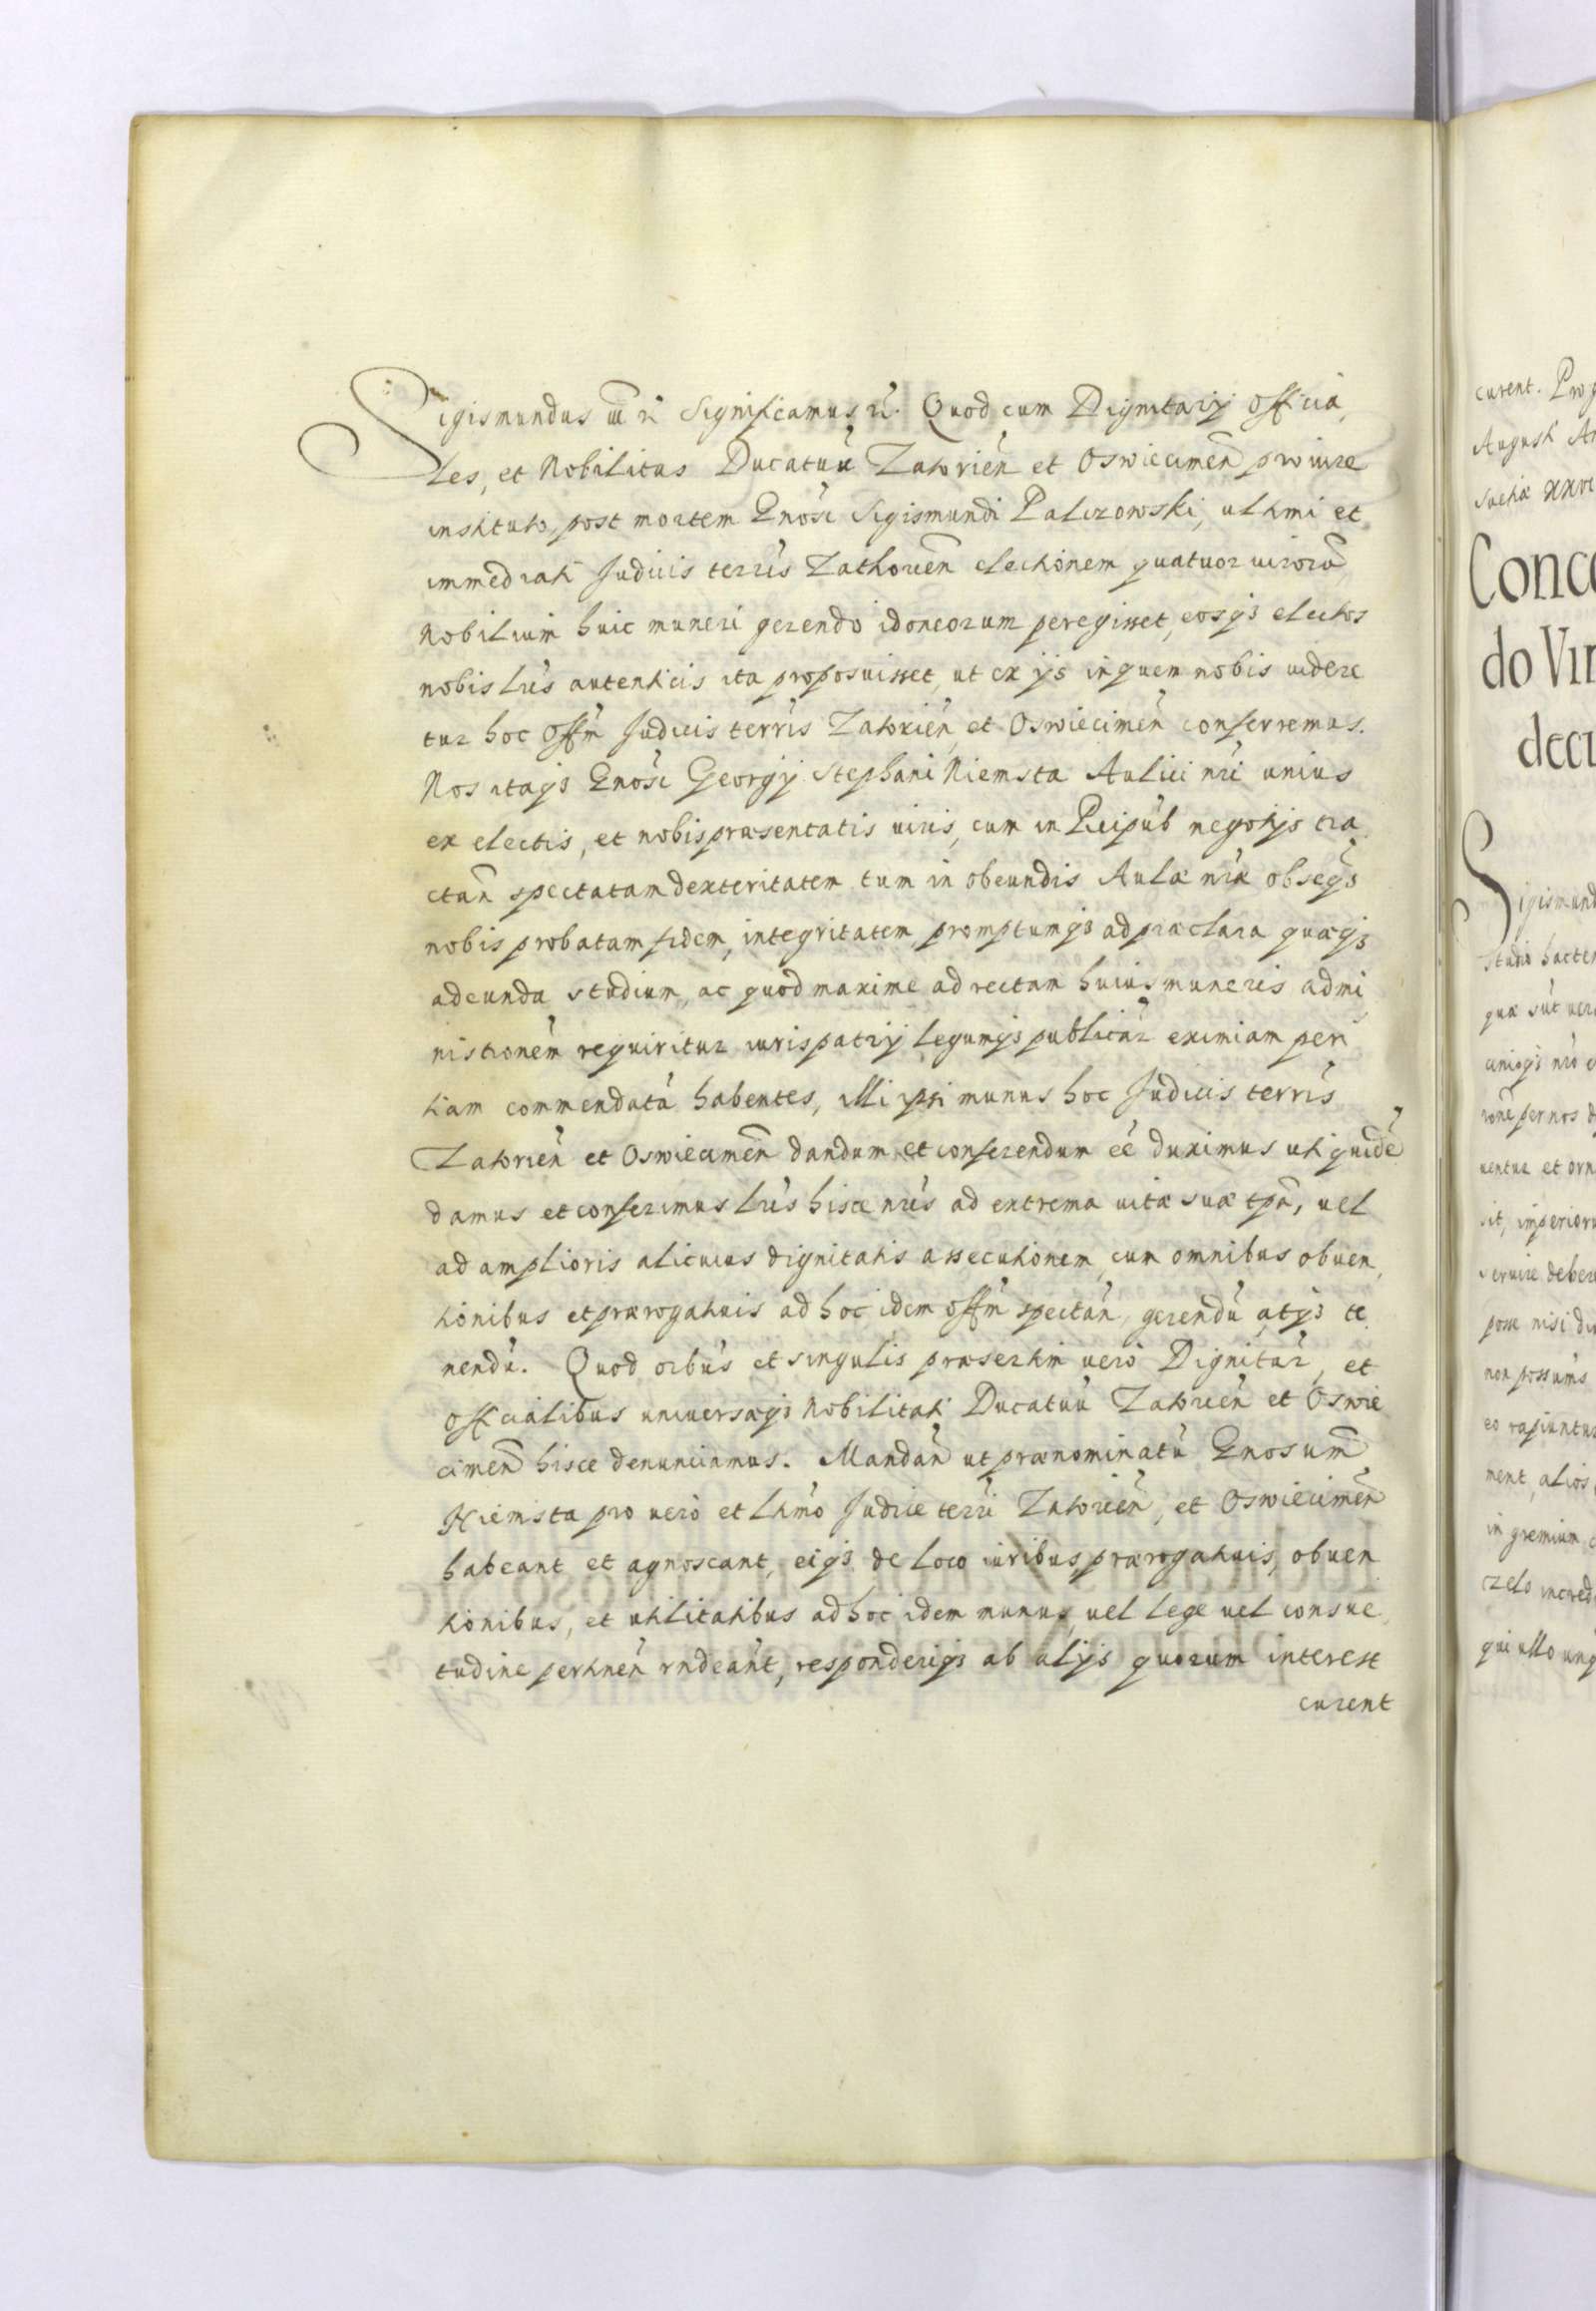 Sigismundus iii rc Significamus rc. Quod cum Dignitarij Officia,
les, et Nobilitas Ducatuũ Zatorien̄ et Oswiecimen̄ pro iure
instituto, post mortem Gnosi Sigismundi Palczowski, ultimi et
immediati Judicis terrīs Zathorien̄ electionem quatuor virorū
Nobilium huic muneri gerendo idoneorum peregisset, eosqꝫ electos
nobis Lrīs autenticis ita proposuisset, ut ex ijs in quem nobis videre
tur hoc Offm̄ Judicis terrīs Zatorien̄, et Oswiecimen̄ conferremus.
Nos itaqꝫ Gnosi Georgij Stephani Niemsta Aulici nrī unius
ex electis, et nobis præsentatis viris, cum in Reipub̄ negotijs tra
ctan̄ spectatam dexteritatem tum in obeundis Aulæ nrǣ obseqꝫ
nobis probatam fidem, integritatem promptumqꝫ ad præclara quæqꝫ
adeunda studium, ac quod maxime ad rectam huius muneris admi
nistronem̄ requiritur iuris patrij legumqꝫ publicar̄ eximiam peri
tiam commendatā habentes, illi ipsi munus hoc Judicis terrīs
Zatorien̄ et Oswiecimen̄ dandum et conferendum eē duximus uti quidē
damus et conferimus Lrīs hisce nrīs ad extrema vitæ suæ tpā, vel
ad amplioris alicuius dignitatis assecutionem, cum omnibus obven,
tionibus et prærogativis ad hoc idem offm̄ spectan̄, gerendū atqꝫ te
nendū. Quod oībus et singulis præsertim vero Dignitar̄, et
Officialibus universæqꝫ Nobilitati Ducatuū Zatorien̄ et Oswie
cimen̄ hisce denunciamus. Mandan̄ ut prænominatū Gnosum
Niemsta pro vero et Ltimo Judice terrī Zatorien̄, et Oswiecimen̄
habeant et agnoscant, eiqꝫ de loco iuribus, prærogativis, obven
tionibus, et utilitatibus ad hoc idem munus, vel lege vel consue
tudine pertinen̄ rndeant̄, responderiqꝫ ab alijs quorum interest
curent
curent. Pro
August Ar
Conce
do Vir
decu
Sigismund
studio hacten
ment, alios
in gremium